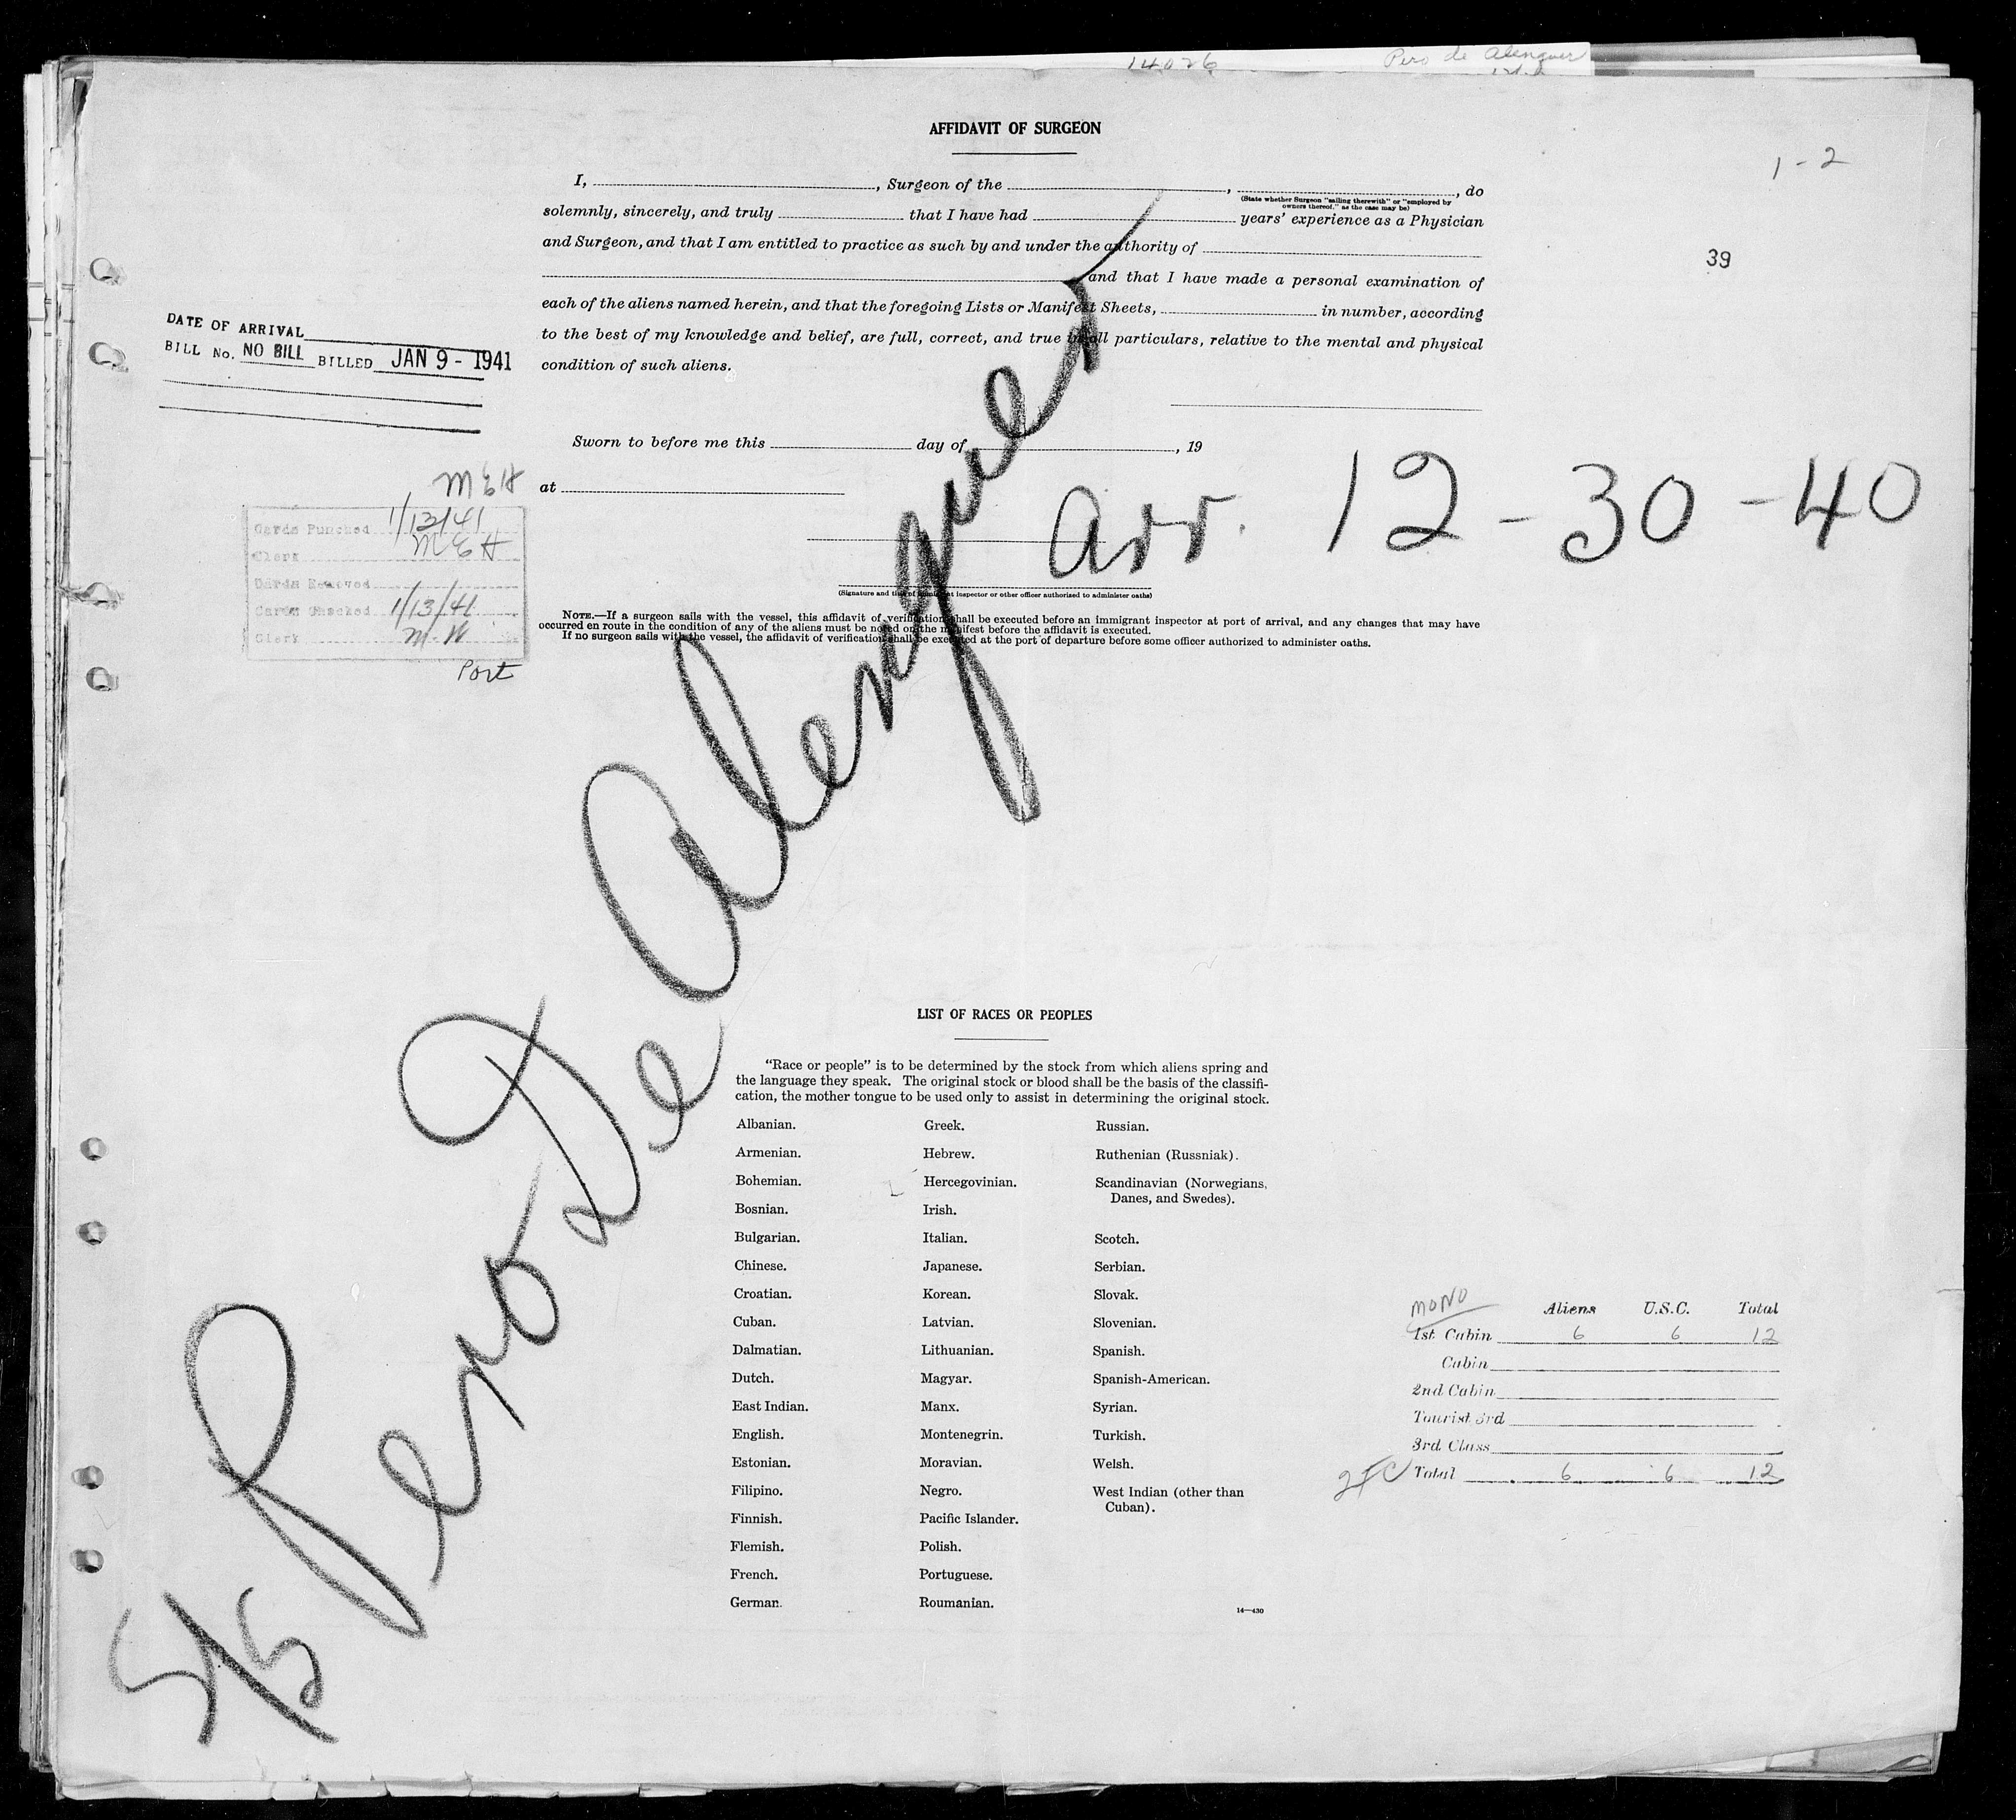 14026
Pero de Alenquer
AFFIDAVIT OF SURGEON
1 - 2
I, , Surgeon of the , , do
(State whether Surgeon "sailing therewith" or "employed by
owners thereof," as the case may be)
solemnly, sincerely, and truly that I have had years' experience as a Physician
and Surgeon, and that I am entitled to practice as such by and under the authority of
39
and that I have made a personal examination of
each of the aliens named herein, and that the foregoing Lists or Manifest Sheets, in number, according
to the best of my knowledge and belief, are full, correct, and true in all particulars, relative to the mental and physical
condition of such aliens.
DATE OF ARRIVAL
BILL No. NO BILL BILLED JAN 9 - 1941
Sworn to before me this day of , 19
at
MEH
Cards Punched 1/13/41
Clerk MEH
Cards Removed
Cards Checked 1/13/41
Clerk M-W
Port
Arr. 12-30-40
(Signature and title of immigrant inspector or other officer authorized to administer oaths)
NOTE.—If a surgeon sails with the vessel, this affidavit of verification shall be executed before an immigrant inspector at port of arrival, and any changes that may have
occurred en route in the condition of any of the aliens must be noted on the manifest before the affidavit is executed.
If no surgeon sails with the vessel, the affidavit of verification shall be executed at the port of departure before some officer authorized to administer oaths.
S/S Pero De Alenquer
LIST OF RACES OR PEOPLES
"Race or people" is to be determined by the stock from which aliens spring and
the language they speak. The original stock or blood shall be the basis of the classifi-
cation, the mother tongue to be used only to assist in determining the original stock.
Albanian.
Armenian.
Bohemian.
Bosnian.
Bulgarian.
Chinese.
Croatian.
Cuban.
Dalmatian.
Dutch.
East Indian.
English.
Estonian.
Filipino.
Finnish.
Flemish.
French.
German.
Greek.
Hebrew.
Hercegovinian.
Irish.
Italian.
Japanese.
Korean.
Latvian.
Lithuanian.
Magyar.
Manx.
Montenegrin.
Moravian.
Negro.
Pacific Islander.
Polish.
Portuguese.
Roumanian.
Russian.
Ruthenian (Russniak).
Scandinavian (Norwegians,
Danes, and Swedes).
Scotch.
Serbian.
Slovak.
Slovenian.
Spanish.
Spanish-American.
Syrian.
Turkish.
Welsh.
West Indian (other than
Cuban).
14—430
MONO
Aliens U.S.C. Total
1st Cabin 6 6 12
Cabin
2nd Cabin
Tourist 3rd
3rd Class
Total 6 6 12